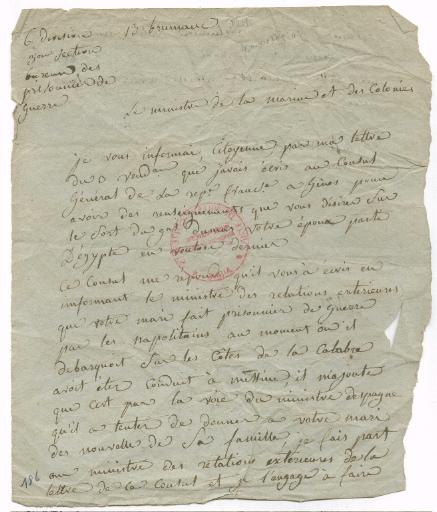 6 division 13 brumaire
3eme section
bureau des
prisonniers de
guerre
Le ministre de la marine et des Colonies
je vous informai, Citoyenne, par ma lettre
du 3 vendre que javais écrit au Consul
Général de La repe francse a Gênes pour
avoir des renseignements que vous désirez Sur
le Sort du gal dumas votre époux parti
D'égypte en ventose dernier
Ce Consul me répond qu'il vous à écrit en
informant le ministre des relations extérieures
que votre mari fait prisonnier de Guerre
par les napolitains au moment où il
debarquoit Sur les Côtes de la Calabre
avoit été Conduit à messine il majoute
que c'est par la voie du ministre despagne
qu'il a tenter de donner a votre mari
des nouvelle de Sa famille, je fais part
au ministre des relations extérieures de la
lettre de ce Consul et je l'engage à faire
186